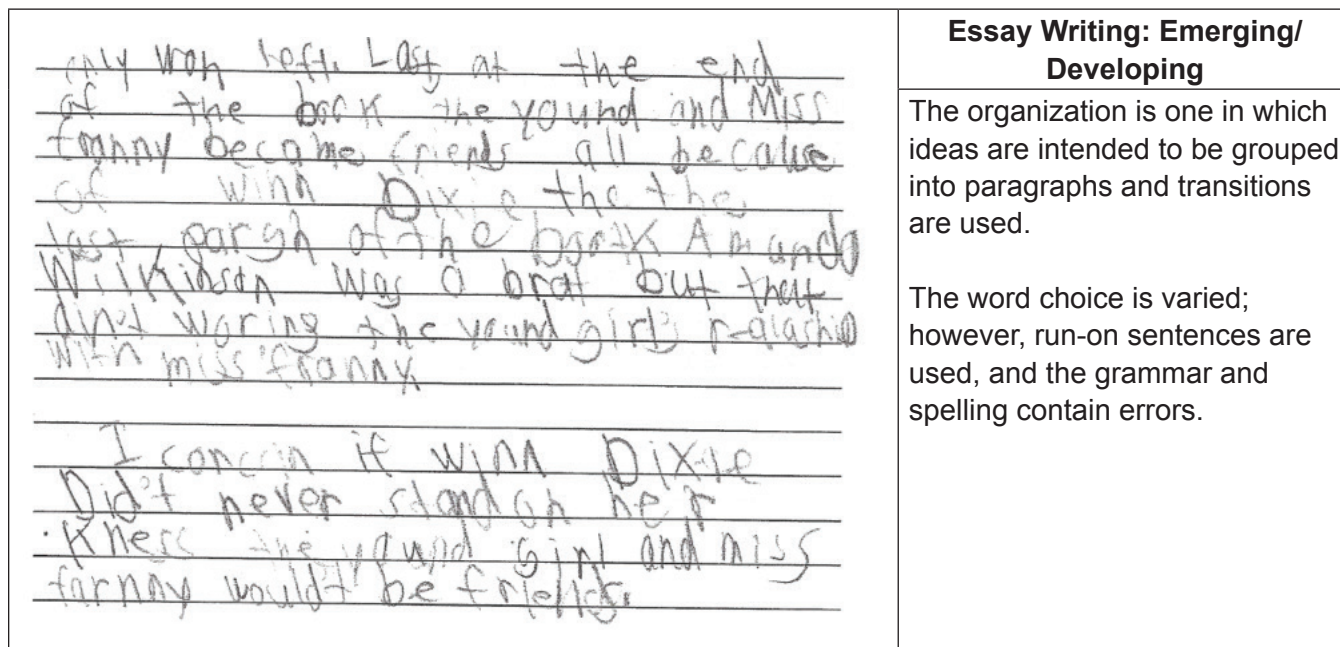 only won left. Last, at the end
of the book the yound and Miss
franny became friends all because
of winn Dixie the the
last pargh of the bootk Amanda
Wilkinson was a brat but that
din't waring the yound girl's r-alashio
with miss franny.
I concrin if winn Dixie
Did't never stand on her
kness the yound girl and miss
farnny would't be friends.
Essay Writing: Emerging/
Developing
The organization is one in which
ideas are intended to be grouped
into paragraphs and transitions
are used.
The word choice is varied;
however, run-on sentences are
used, and the grammar and
spelling contain errors.